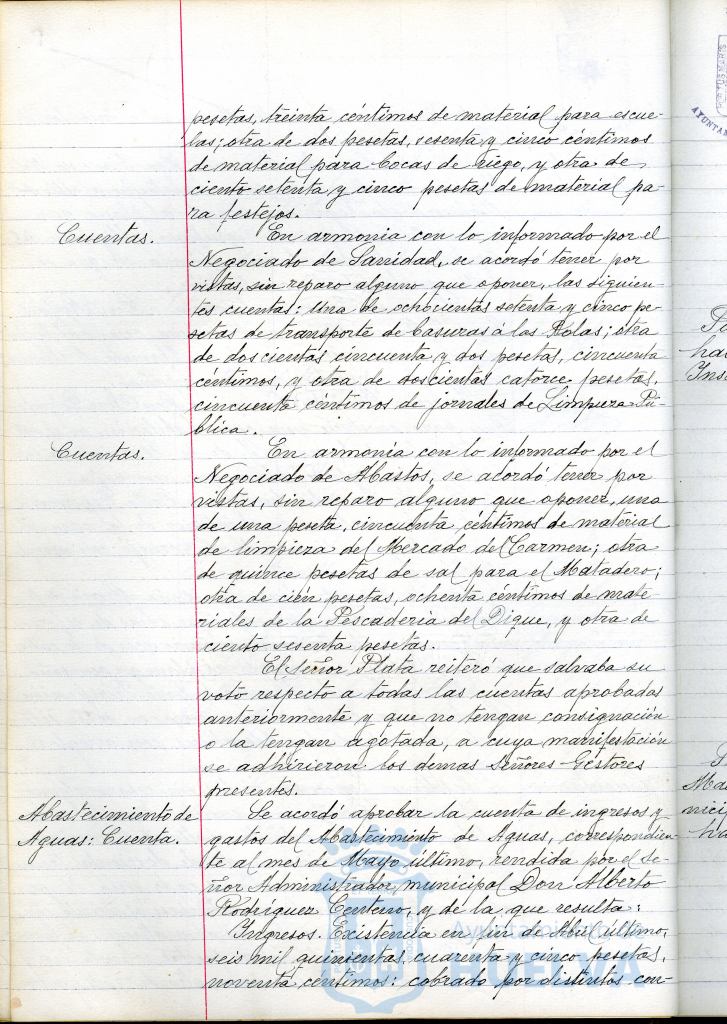 pesetas, treinta céntimos de material para escue-
las; otra de dos pesetas, sesenta y cinco céntimos
de material para bocas de riego, y otra de
ciento setenta y cinco pesetas de material pa-
ra festejos.
Cuentas.
En armonia con lo informado por el
Negociado de Sanidad, se acordó tener por
vistas, sin reparo alguno que oponer, las siguien-
tes cuentas: Una de ochocientas setenta y cinco pe-
setas de transporte de basuras á las Kolas; otra
de doscientas cincuenta y dos pesetas, cincuenta
céntimos, y otra de doscientas catorce pesetas,
cincuenta céntimos de jornales de Limpieza Pú-
blica.
Cuentas.
En armonía con lo informado por el
Negociado de Abastos, se acordó tener por
vistas, sin reparo alguno que oponer, una
de una peseta, cincuenta céntimos de material
de limpieza del Mercado del Carmen; otra
de quince pesetas de sal para el Matadero;
otra de cien pesetas, ochenta céntimos de mate-
riales de la Pescaderia del Dique, y otra de
ciento sesenta pesetas.
El señor Plata reiteró que salvaba su
voto respecto a todas las cuentas aprobadas
anteriormente y que no tengan consignación
o la tengan agotada, a cuya manifestación
se adhirieron los demas Señores Gestores
presentes.
Abastecimiento de
Aguas: Cuenta.
Se acordó aprobar la cuenta de ingresos y
gastos del Abastecimiento de Aguas, correspondien-
te al mes de Mayo último, rendida por el Se-
ñor Administrador municipal Don Alberto
Rodríguez Centeno, y de la que resulta:
Ingresos. Existencia en fin de Abril último,
seis mil quinientas cuarenta y cinco pesetas,
noventa céntimos: cobrado por distintos con-
HUELVA